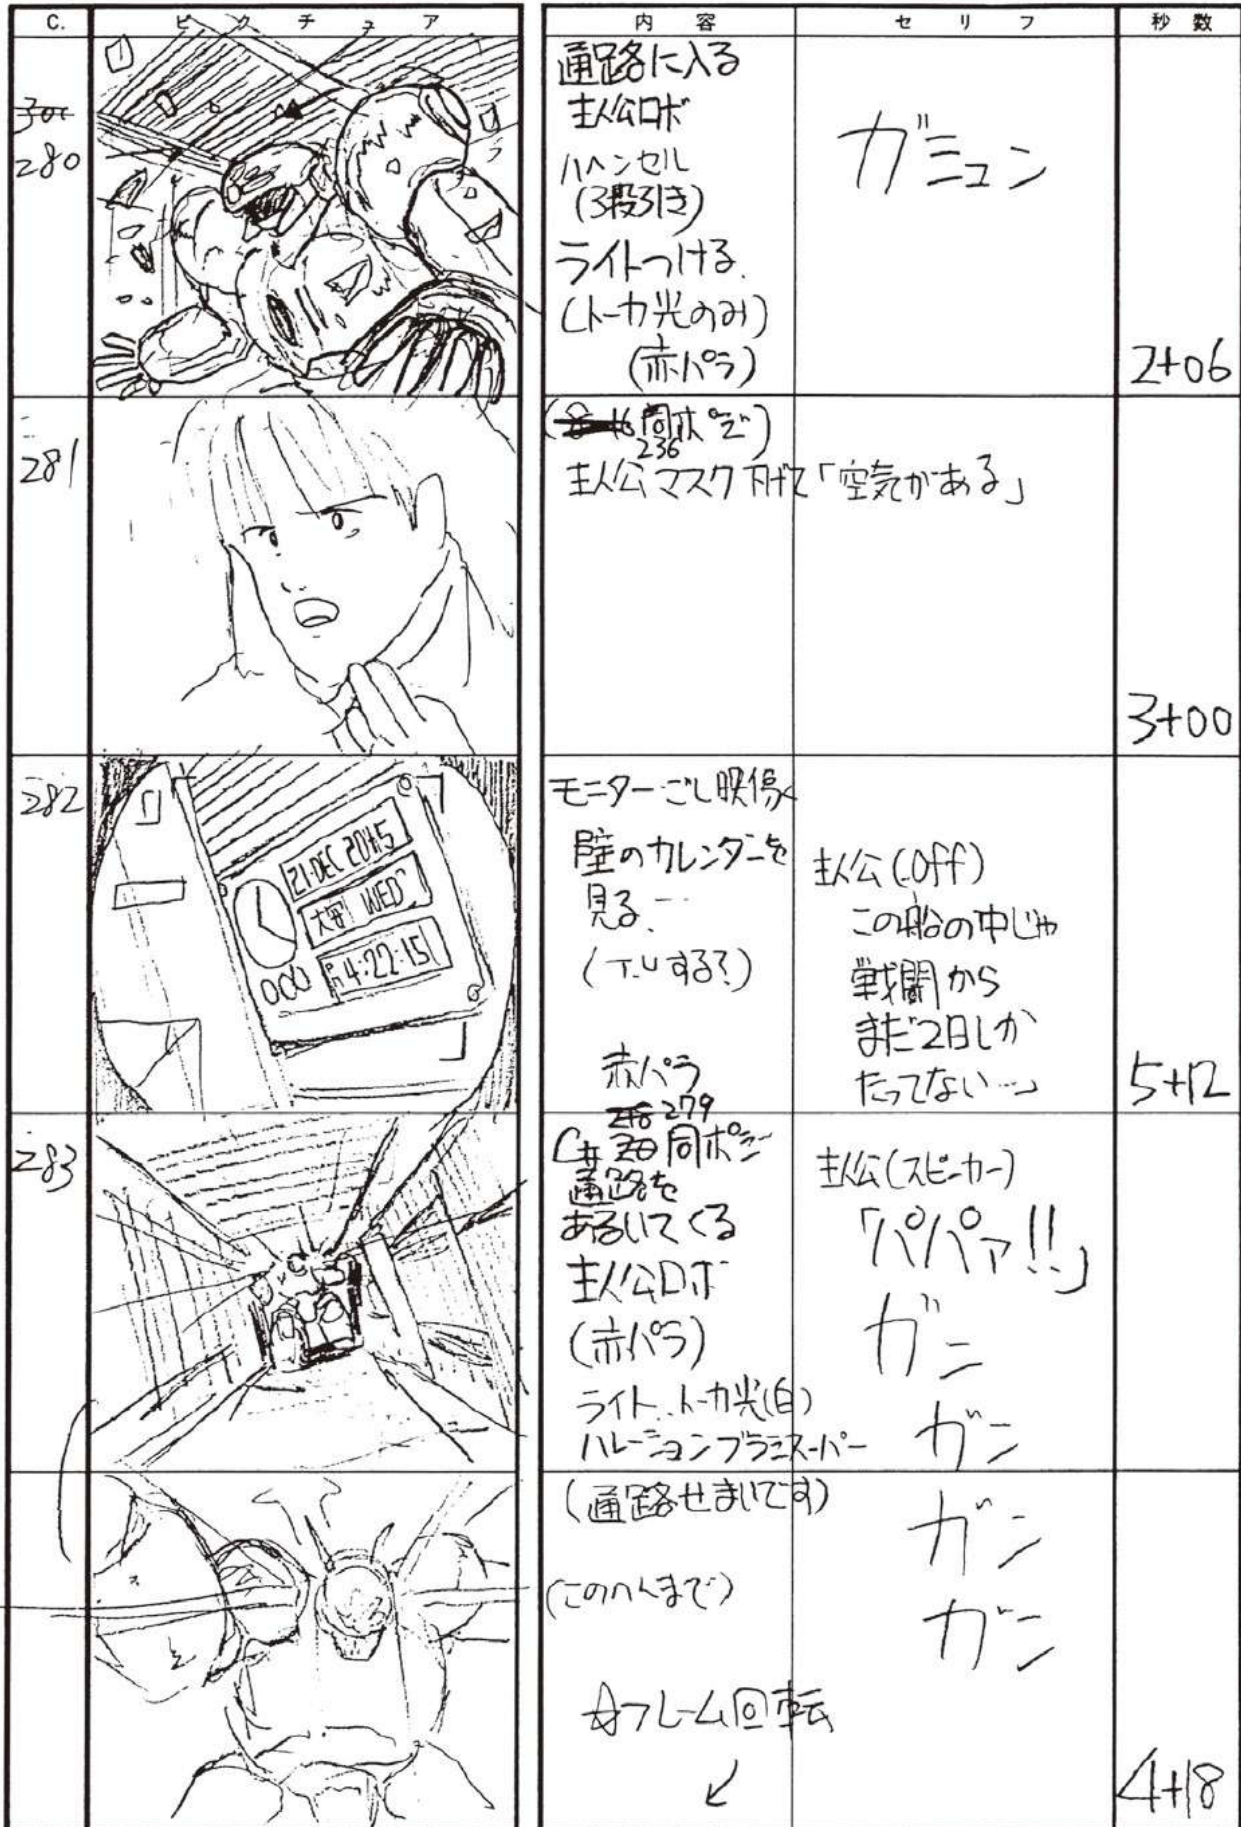 C. ピクチュア 内容 セリフ 秒数
280
通路に入る
主人公ロボ
ハヘンセル
(3段引き)
ライトつける.
(トーカ光のみ)
(赤パラ)
ガミュン
2+06
281
236
同ポジ)
主人公マスク下げて「空気がある」
3+00
282
21・DEC 2015
大安 WED
4:22:15
モニターごし映像
壁のカレンダーを
見る…
(T.Uする?)
赤パラ
主人公(Off)
この船の中じゃ
戦闘から
まだ2日しか
たってない…」
5+12
283
279
C# 同ポジ
通路を
あるいてくる
主人公ロボ
(赤パラ)
ライト..トーカ光(白)
ハレーションブラシスーパー
主人公(スピーカー)
「パパァ!!」
ガン
ガン
(通路せまいです)
(このヘんまで)
☆フレーム回転
ガン
ガン
4+18